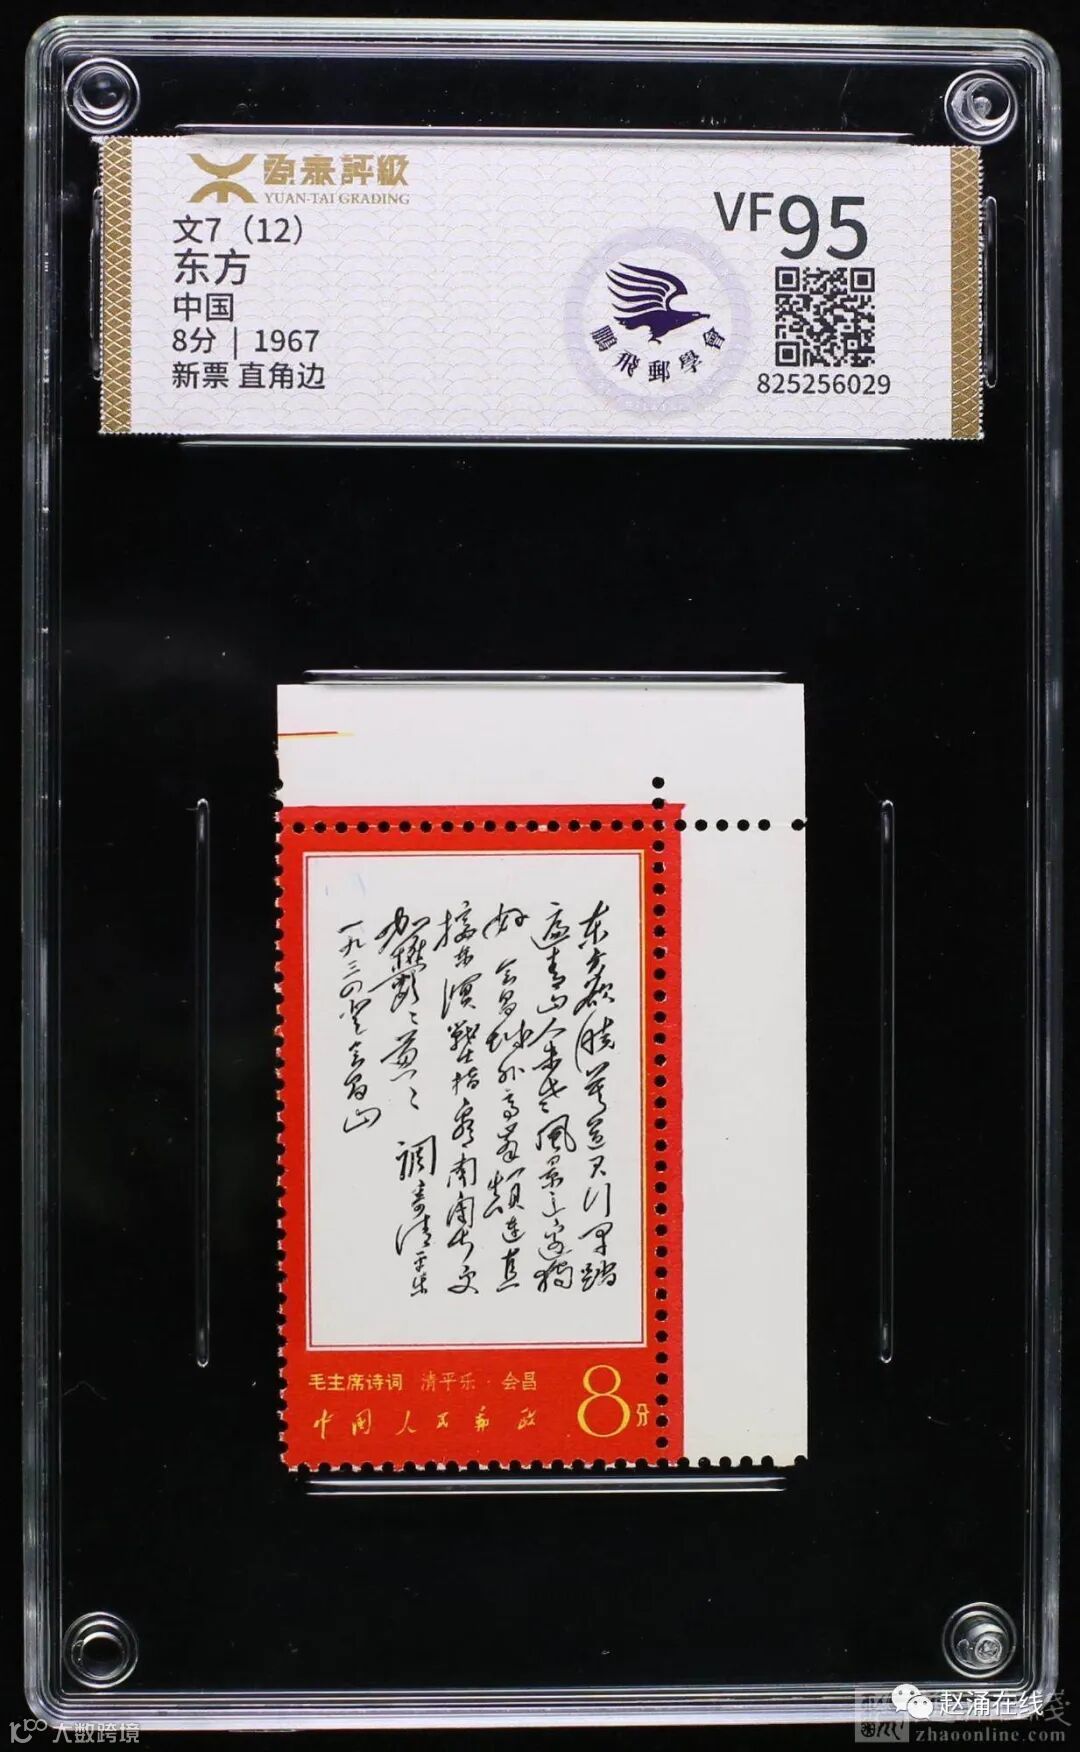 源泰評級
YUAN-TAI GRADING
文7（12）
东方
中国
8分 | 1967
新票 直角边
VF95
鵬飛郵學會
825256029
东方欲晓莫道君行早踏
遍青山人未老风景这边独
好 会昌城外高峰颠连直
接东溟战士指看南粤更
加郁郁葱葱 调寄清平乐
一九三四登会昌山
毛主席诗词 清平乐·会昌
中国人民邮政
8分
大数跨境
赵涌在线
zhaoonline.com